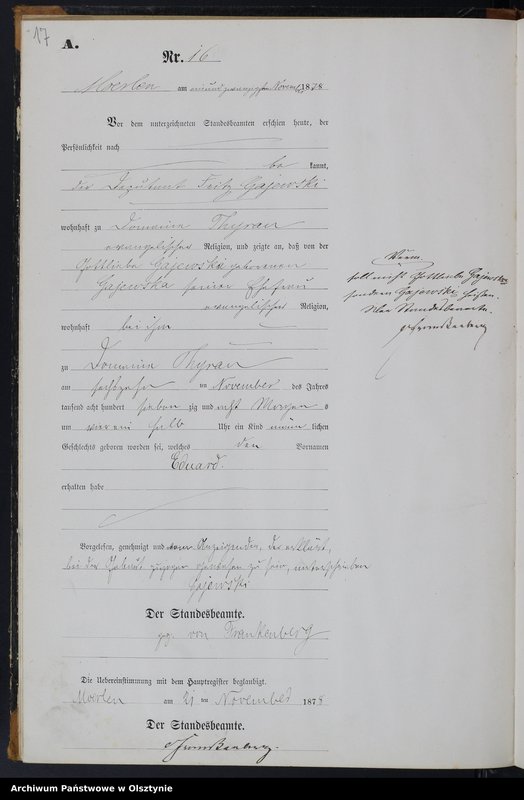 17
A.
Nr. 16
Moerlen am einundzwanzigsten November 1878
Vor dem unterzeichneten Standesbeamten erschien heute, der
Persönlichkeit nach
be kannt,
der Deputant Fritz Gajewski
wohnhaft zu Domaine Thyrau
evangelischer Religion, und zeigte an, daß von der
Gottliebe Gajewski geborenen
Gajewska seiner Ehefrau
evangelischer Religion,
wohnhaft bei ihm
zu Domaine Thyrau
am sechszehn ten November des Jahres
tausend acht hundert sieben zig und acht Morgen s
um vier ein halb Uhr ein Kind männ lichen
Geschlechts geboren worden sei, welches den Vornamen
Eduard.
erhalten habe
Vorgelesen, genehmigt und vom Anzeigenden, der erklärt,
bei der Geburt zugegen gewesen zu sein, unterschrieben
Gajewski
Der Standesbeamte.
gez. von Frankenberg
Die Uebereinstimmung mit dem Hauptregister beglaubigt.
Moerlen am 21 ten November 1878
Der Standesbeamte.
vFrankenberg.
soll nicht Gottliebe Gajewska
sondern Gajewski heißen.
Der Standesbeamte.
vFrankenberg
Archiwum Państwowe w Olsztynie